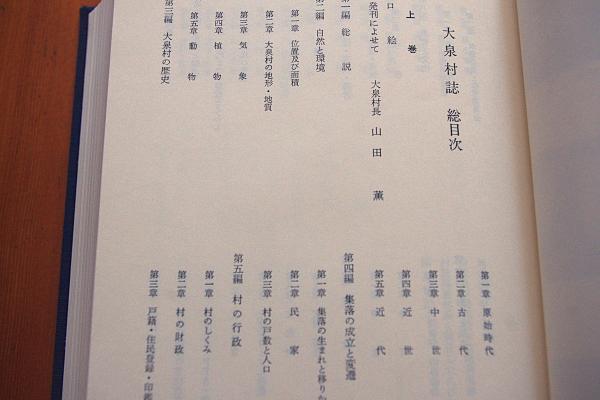 大泉村誌 総目次
上巻
口絵
発刊によせて 大泉村長 山田 薫
第一編 総説
第二編 自然と環境
第一章 位置及び面積
第二章 大泉村の地形・地質
第三章 気象
第四章 植物
第五章 動物
第三編 大泉村の歴史
第一章 原始時代
第二章 古代
第三章 中世
第四章 近世
第五章 近代
第四編 集落の成立と変遷
第一章 集落の生まれと移りか
第二章 民家
第三章 村の戸数と人口
第五編 村の行政
第一章 村のしくみ
第二章 村の財政
第三章 戸籍・住民登録・印鑑